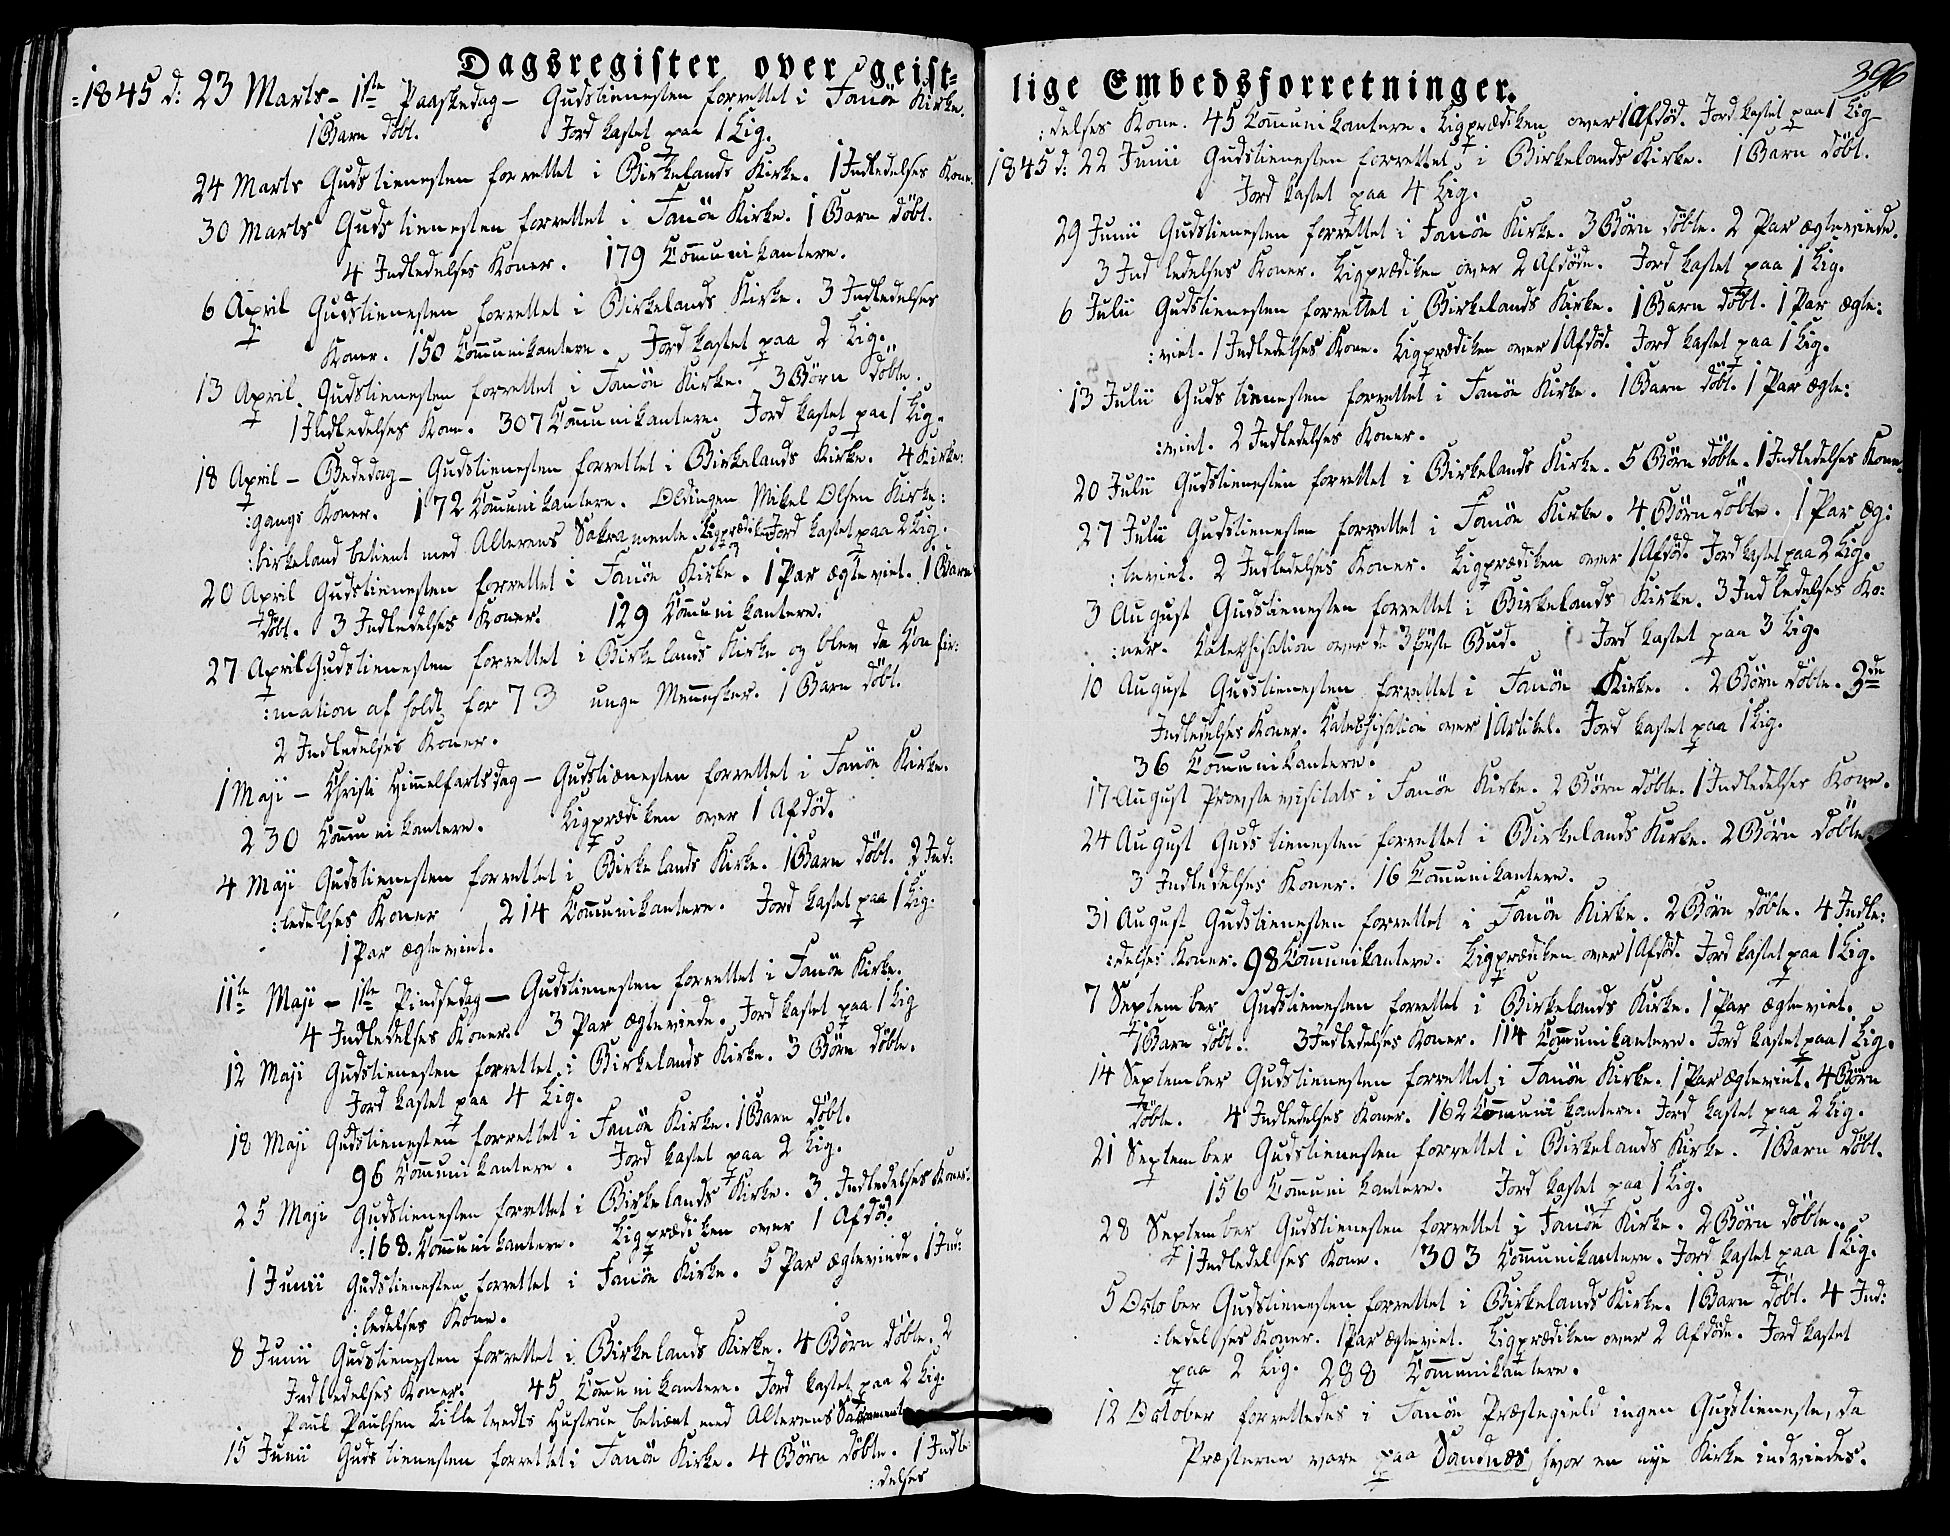 Dagsregister over geist-
1845 d: 23 Marts - 1ste Paaskedag - Gudstienesten forrettet i Fanöe Kirke.
1 Barn döbt. Jord kastet paa 1 Lig.
24 Marts Gudstienesten forrettet i Birkelands Kirke. 1 Indledelses Kone.
30 Marts Gudstienesten forrettet i Fanöe Kirke. 1 Barn döbt.
4 Indledelses Koner. 179 Communikantere.
6 April Gudstienesten forrettet i Birkelands Kirke. 3 Indledelses
Koner. 150 Communikantere. Jord kastet paa 2 Lig.
13 April. Gudstienesten forrettet i Fanöe Kirke. 3 Börn döbte.
1 Indledelses Kone. 307 Communikantere. Jord kastet paa 1 Lig.
18 April - Bededag - Gudstienesten forrettet i Birkelands Kirke. 4 Kirke:
:gangs Koner. 172 Communikantere. Oldingen Mikel Olsen Kirke:
:birkeland betient med Alterens Sakramente. Jord kastet paa 2 Lig.
20 April Gudstienesten forrettet i Fanöe Kirke. 1 Par ægteviet. 1 Barn
döbt. 3 Indledelses Koner. 129 Communikantere.
27 April Gudstienesten forrettet i Birkelands Kirke og blev da Confir:
:mation afholdt for 73 unge Mennesker. 1 Barn döbt.
2 Indledelses Koner.
1 Maji - Christi Himmelfartsdag - Gudstienesten forrettet i Fanöe Kirke.
230 Communikantere. Ligprædiken over 1 Afdöd.
4 Maji Gudstienesten forrettet i Birkelands Kirke. 1 Barn döbt. 2 Ind:
:ledelses Koner 214 Communikantere. Jord kastet paa 1 Lig.
1 Par ægteviet.
11te Maji - 1ste Pindsedag - Gudstienesten forrettet i Fanöe Kirke.
4 Indledelses Koner. 3 Par ægteviede. Jord kastet paa 1 Lig
12 Maji Gudstienesten forrettet i Birkelands Kirke. 3 Börn döbte.
Jord kastet paa 4 Lig.
18 Maji Gudstienesten forrettet i Fanöe Kirke. 1 Barn döbt.
96 Communikantere. Jord kastet paa 2 Lig.
25 Maji Gudstienesten forrettet i Birkelands Kirke. 3 Indledelses Koner.
:168. Communikantere. Ligprædiken over 1 Afdöd.
1 Junii Gudstienesten forrettet i Fanöe Kirke. 5 Par ægteviede. 1 In:
:ledelses Kone.
8 Junii Gudstienesten forrettet i Birkelands Kirke. 4 Börn döbte. 2
Indledelses Koner. 45 Communikantere. Jord kastet paa 2 Lig.
Paul Paulsen Lilletvedts Hustrue betient med Alterens Sacramente
15 Junii Gudstienesten forrettet i Fanöe Kirke. 4 Börn döbte. 1 Indle
:delses
396
lige Embedsforretninger.
:delses Kone. 45 Communikantere. Ligprædiken over 1 Afdöd. Jord kastet paa 1 Lig
1845 d: 22 Junii Gudstienesten forrettet i Birkelands Kirke. 1 Barn döbt.
Jord kastet paa 4 Lig.
29 Junii Gudstienesten forrettet i Fanöe Kirke. 3 Börn döbte. 2 Par ægteviede.
3 Indledelses Koner. Ligprædiken over 2 Afdöde. Jord kastet paa 1 Lig.
6 Julii Gudstienesten forrettet i Birkelands Kirke. 1 Barn döbt. 1 Par ægte:
:viet. 1 Indledelses Kone. Ligprædiken over 1 Afdöd. Jord kastet paa 1 Lig.
13 Julii Gudstienesten forrettet i Fanöe Kirke. 1 Barn döbt. 1 Par ægte:
:viet. 2 Indledelses Koner.
20 Julii Gudstienesten forrettet i Birkelands Kirke. 5 Börn döbte. 1 Indledelses Kone.
27 Julii Gudstienesten forrettet i Fanöe Kirke. 4 Börn döbte. 1 Par æg:
:teviet. 2 Indledelses Koner. Ligprædiken over 1 Afdöd. Jord kastet paa 2 Lig.
3 August Gudstienesten forrettet i Birkelands Kirke. 3 Indledelses Ko:
:ner. Catechisation over de 3 förste Bud. Jord kastet paa 3 Lig.
10 August Gudstienesten forrettet i Fanöe Kirke. 2 Börn döbte. 3de
Indledelses Koner. Catechisation over 1 Artikel. Jord kastet paa 1 Lig.
36 Communikantere.
17 August Provstevisitats i Fanöe Kirke. 2 Börn döbte. 1 Indledelses Kone.
24 August Gudstienesten forrettet i Birkelands Kirke. 2 Börn döbte.
3 Indledelses Koner. 16 Communikantere.
31 August Gudstienesten forrettet i Fanöe Kirke. 2 Börn döbte. 4 Indle:
:delses Koner. 98 Communikantere. Ligprædiken over 1 Afdöd. Jord kastet paa 1 Lig.
7 September Gudstienesten forrettet i Birkelands Kirke. 1 Par ægteviet.
1 Barn döbt. 3 Indledelses Koner. 114 Communikantere. Jord kastet paa 1 Lig.
14 September Gudstienesten forrettet i Fanöe Kirke. 1 Par ægteviet. 4 Börn
döbte. 4 Indledelses Koner. 162 Communikantere. Jord kastet paa 2 Lig.
21 September Gudstienesten forrettet i Birkelands Kirke. 1 Barn döbt.
156 Communikantere. Jord kastet paa 1 Lig.
28 September Gudstienesten forrettet i Fanöe Kirke. 2 Börn döbte.
1 Indledelses Kone. 303 Communikantere. Jord kastet paa 1 Lig.
5 October Gudstienesten forrettet i Birkelands Kirke. 1 Barn döbt. 4 Ind:
:ledelses Koner. 1 Par ægteviet. Ligprædiken over 2 Afdöde. Jord kastet
paa 2 Lig. 288 Communikantere.
12 October forrettedes i Fanöe Præstegield ingen Gudstieneste, da
Præsterne vare paa Sandnæs, hvor en nye Kirke indviedes.